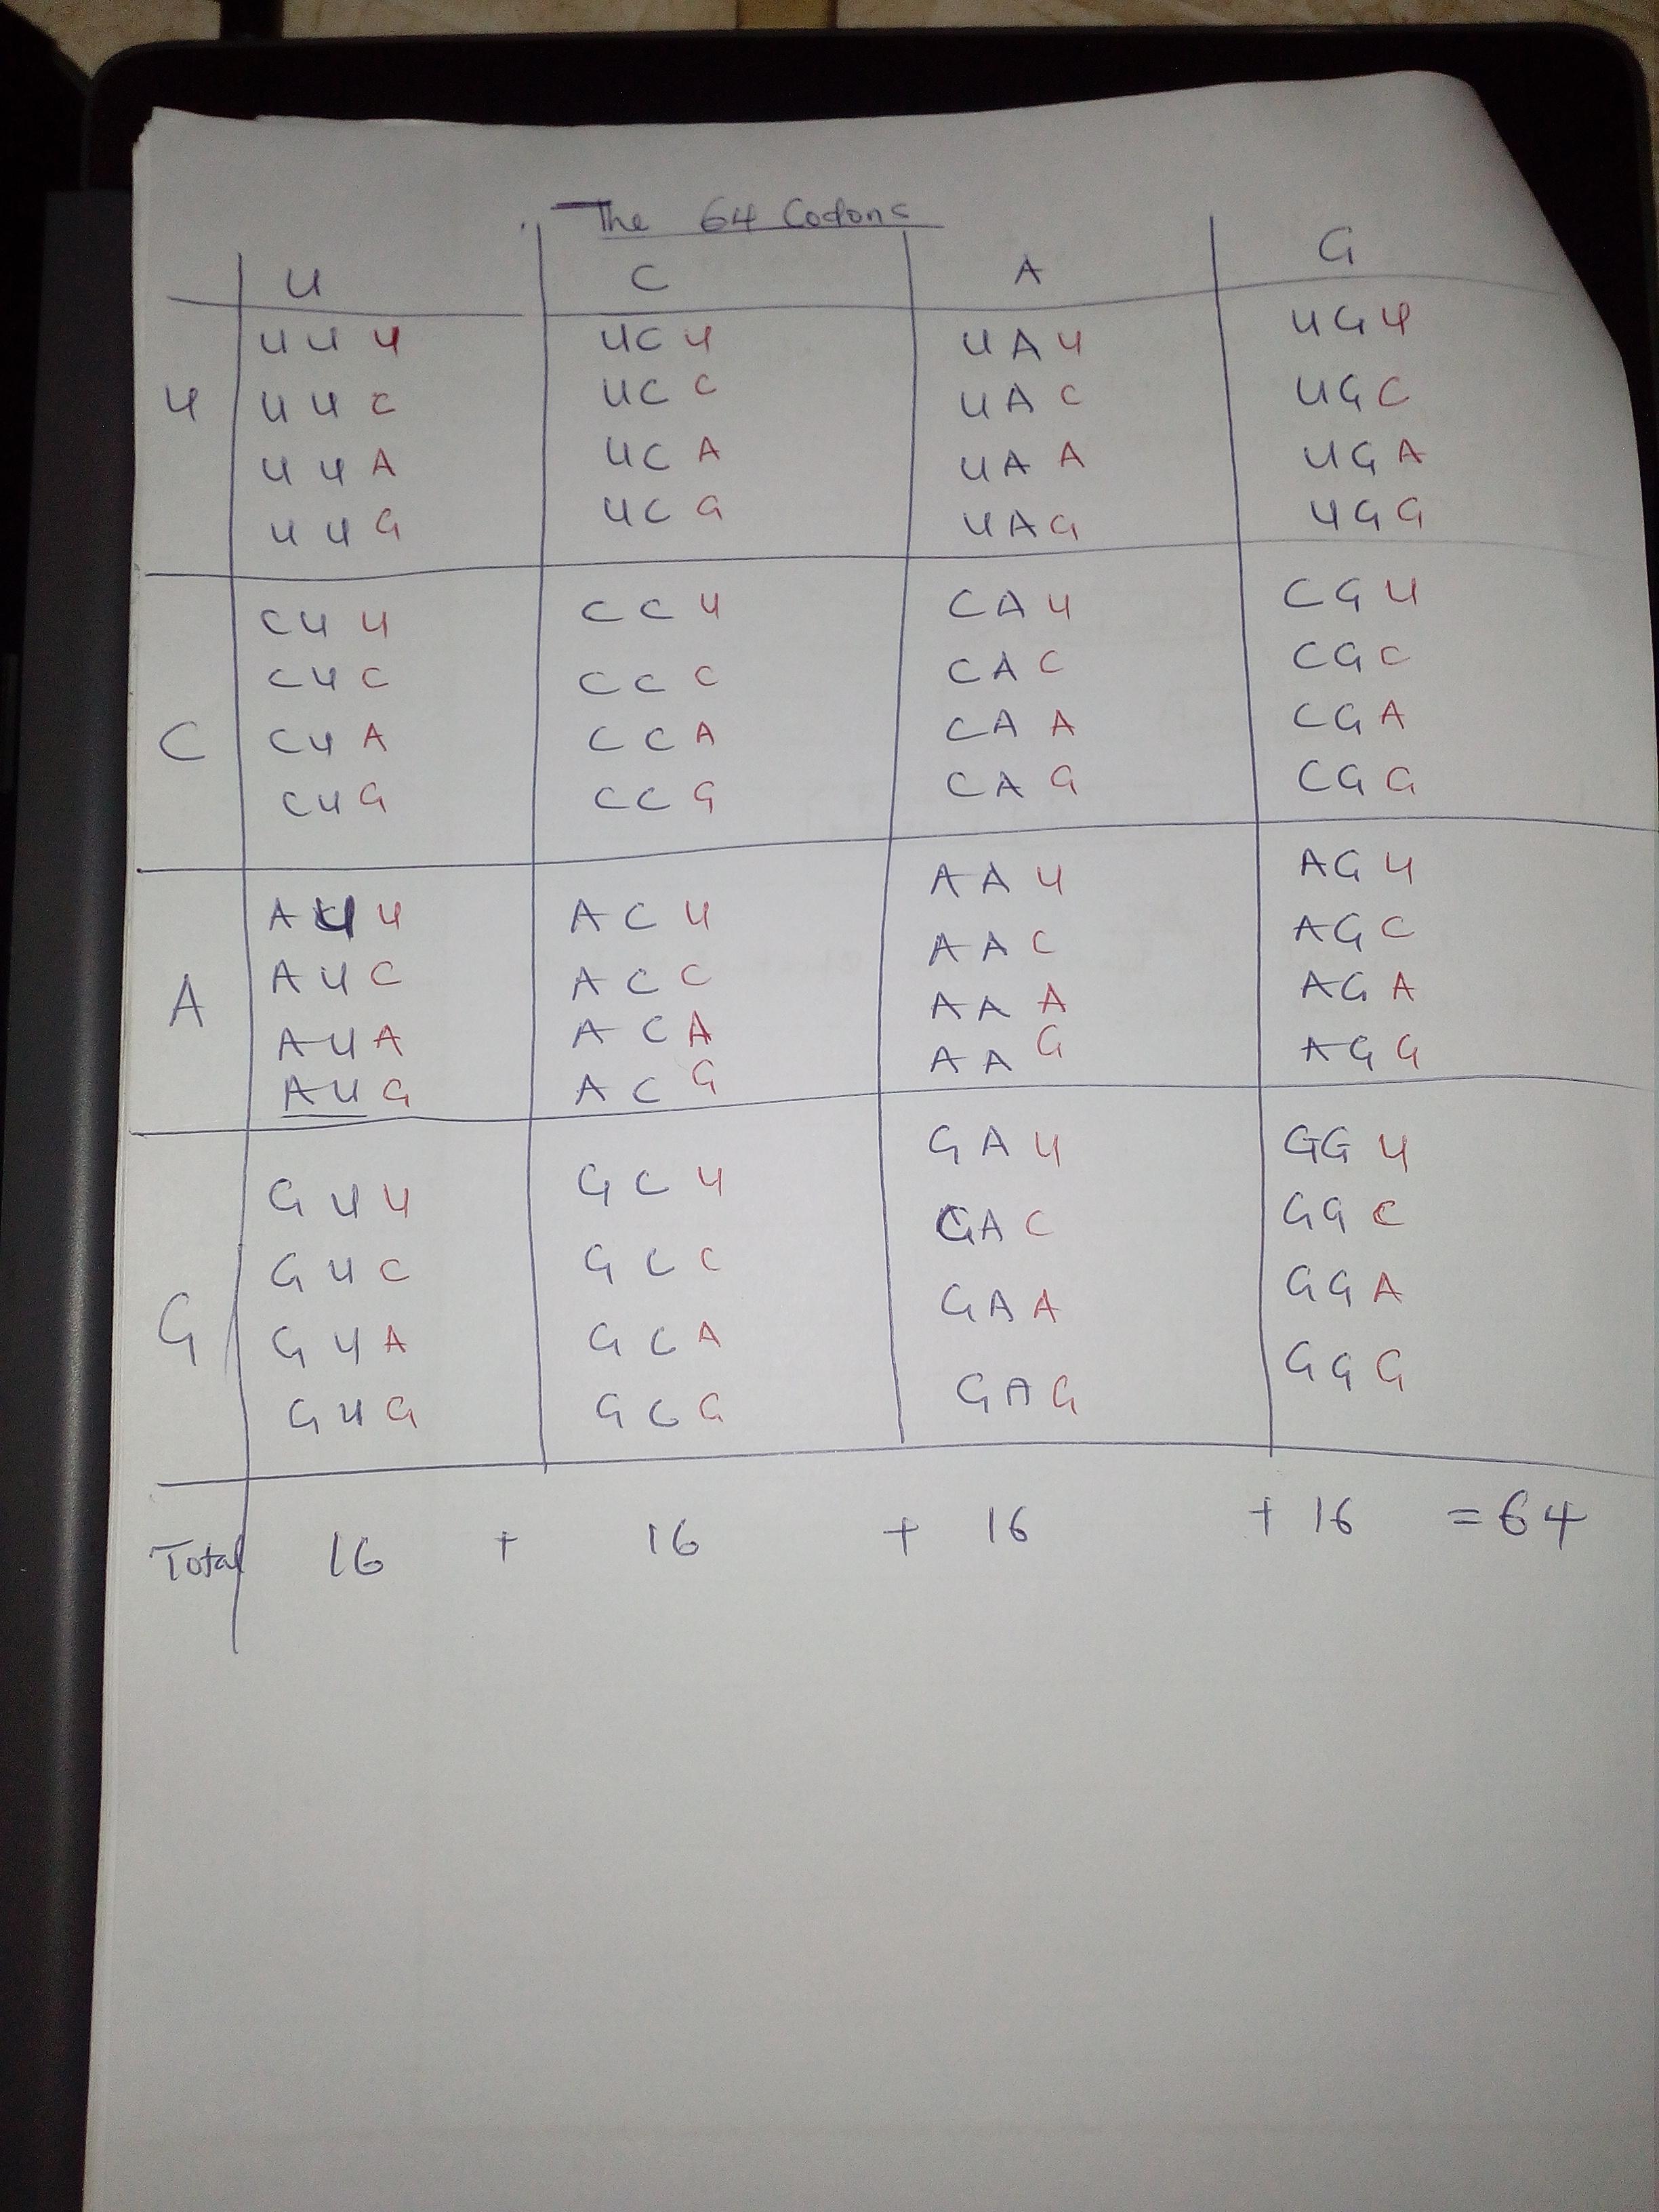 The 64 Codons
U C A G
U
UUU UCU UAU UGU
UUC UCC UAC UGC
UUA UCA UAA UGA
UUG UCG UAG UGG
C
CUU CCU CAU CGU
CUC CCC CAC CGC
CUA CCA CAA CGA
CUG CCG CAG CGG
A
AUU ACU AAU AGU
AUC ACC AAC AGC
AUA ACA AAA AGA
AUG ACG AAG AGG
G
GUU GCU GAU GGU
GUC GCC GAC GGC
GUA GCA GAA GGA
GUG GCG GAG GGG
Total 16 + 16 + 16 + 16 = 64